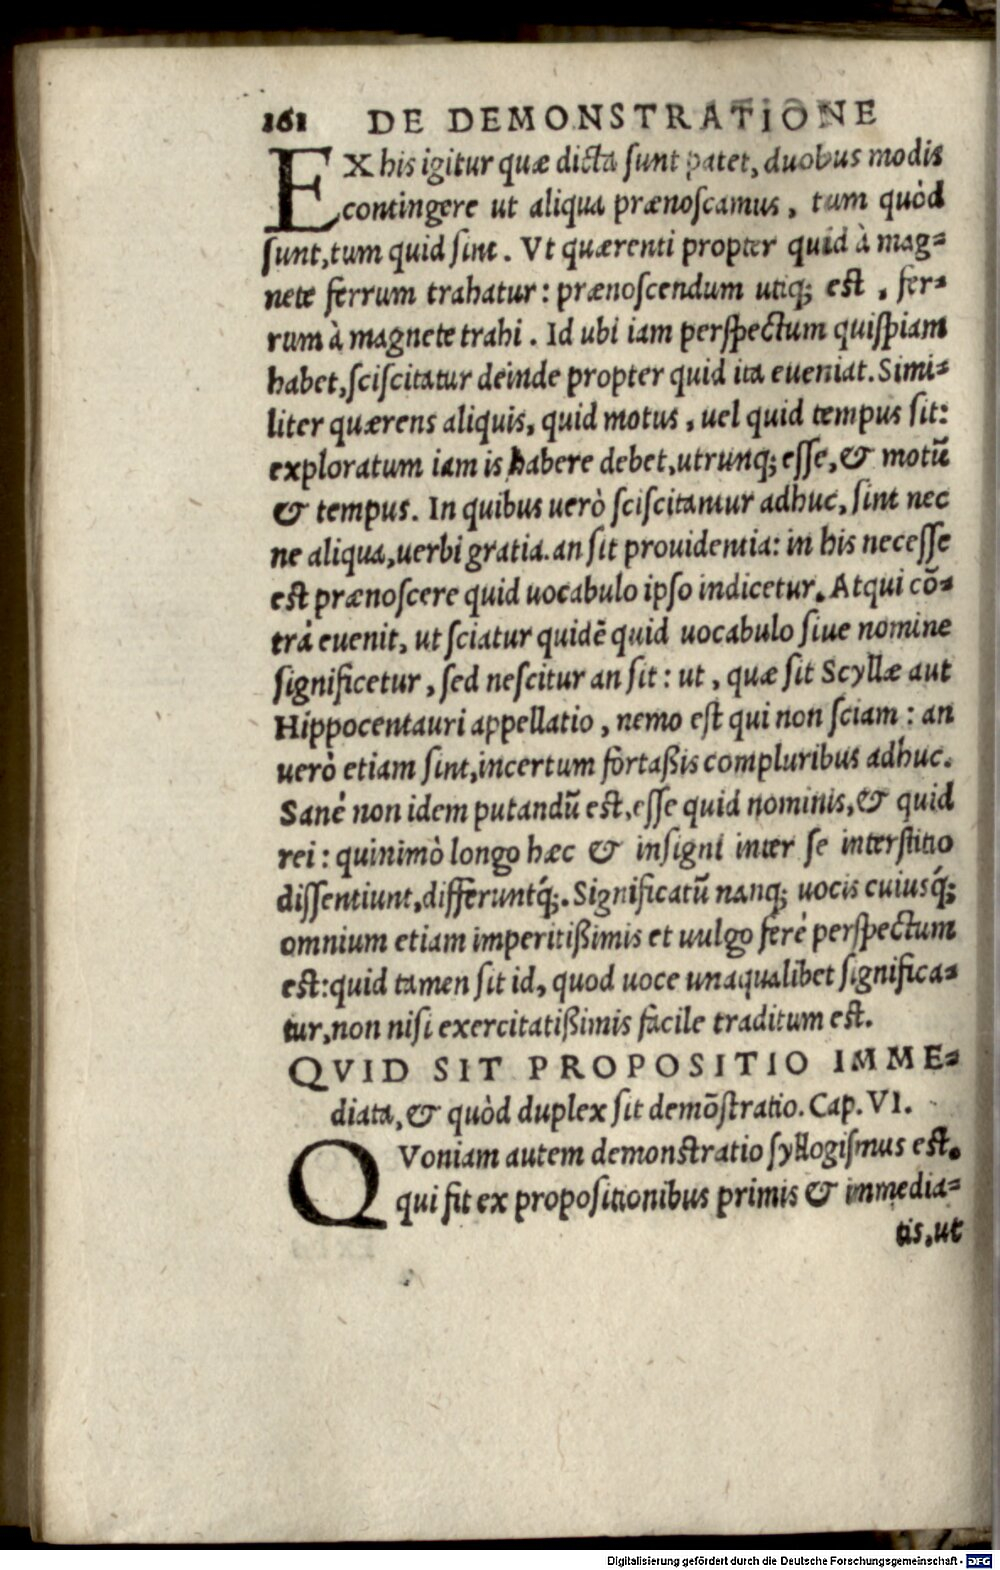 161 DE DEMONSTRATIONE
EX his igitur quæ dicta sunt patet, duobus modis
contingere ut aliqua prænoscamus, tum quòd
sunt, tum quid sint. Vt quærenti propter quid à mag-
nete ferrum trahatur: prænoscendum utiq; est, fer-
rum à magnete trahi. Id ubi iam perspectum quispiam
habet, sciscitatur deinde propter quid ita eueniat. Simi-
liter quærens aliquis, quid motus, uel quid tempus sit:
exploratum iam is habere debet, utrunq; esse, & motū
& tempus. In quibus uerò sciscitamur adhuc, sint nec
ne aliqua, uerbi gratia. an sit prouidentia: in his necesse
est prænoscere quid uocabulo ipso indicetur. Atqui cō-
trà euenit, ut sciatur quidē quid uocabulo siue nomine
significetur, sed nescitur an sit: ut, quæ sit Scyllæ aut
Hippocentauri appellatio, nemo est qui non sciam: an
uerò etiam sint, incertum fortaßis compluribus adhuc.
Sanè non idem putandū est, esse quid nominis, & quid
rei: quinimò longo hæc & insigni inter se interstitio
dissentiunt, differuntq́;. Significatū nanq; uocis cuiusq́;
omnium etiam imperitißimis et uulgo ferè perspectum
est: quid tamen sit id, quod uoce unaqualibet significa-
tur, non nisi exercitatißimis facile traditum est.
QVID SIT PROPOSITIO IMME-
diata, & quòd duplex sit demōstratio. Cap. VI.
QVoniam autem demonstratio syllogismus est.
qui fit ex propositionibus primis & immedia-
tis, ut
Digitalisierung gefördert durch die Deutsche Forschungsgemeinschaft - DFG